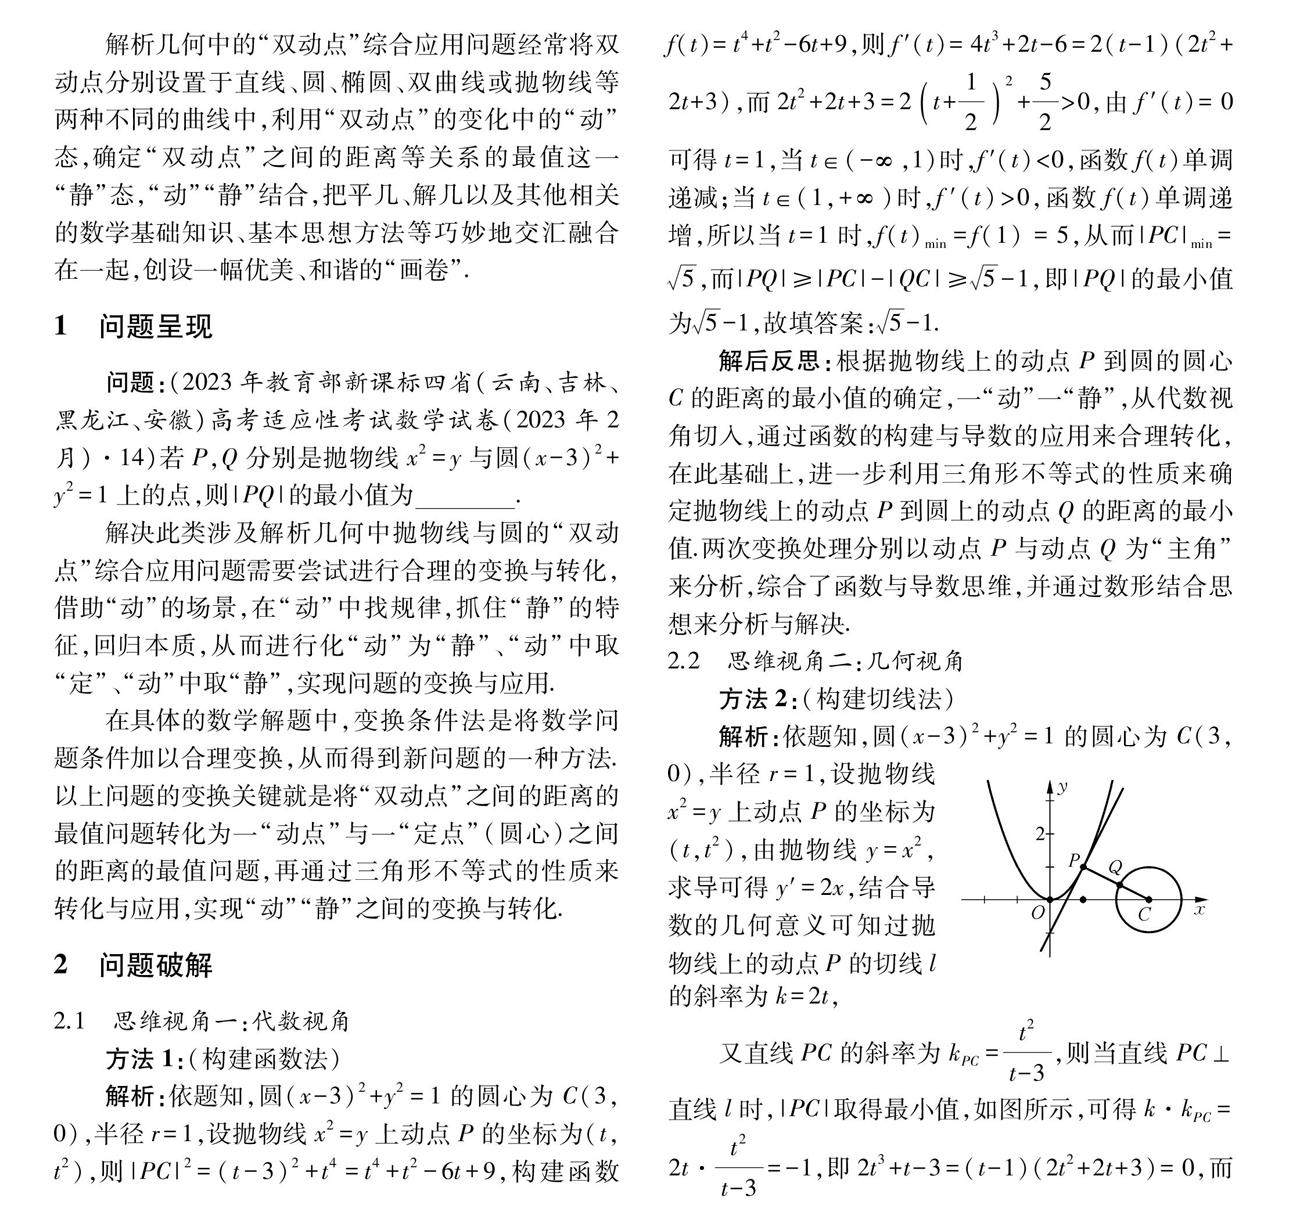 解析几何中的“双动点”综合应用问题经常将双
动点分别设置于直线、圆、椭圆、双曲线或抛物线等
两种不同的曲线中,利用“双动点”的变化中的“动”
态,确定“双动点”之间的距离等关系的最值这一
“静”态,“动”“静”结合,把平几、解几以及其他相关
的数学基础知识、基本思想方法等巧妙地交汇融合
在一起,创设一幅优美、和谐的“画卷”.
1 问题呈现
问题:(2023 年教育部新课标四省(云南、吉林、
黑龙江、安徽)高考适应性考试数学试卷(2023 年 2
月)·14)若 P,Q 分别是抛物线 x²=y 与圆(x-3)²+
y²=1 上的点,则|PQ|的最小值为________.
解决此类涉及解析几何中抛物线与圆的“双动
点”综合应用问题需要尝试进行合理的变换与转化,
借助“动”的场景,在“动”中找规律,抓住“静”的特
征,回归本质,从而进行化“动”为“静”、“动”中取
“定”、“动”中取“静”,实现问题的变换与应用.
在具体的数学解题中,变换条件法是将数学问
题条件加以合理变换,从而得到新问题的一种方法.
以上问题的变换关键就是将“双动点”之间的距离的
最值问题转化为一“动点”与一“定点”(圆心)之间
的距离的最值问题,再通过三角形不等式的性质来
转化与应用,实现“动”“静”之间的变换与转化.
2 问题破解
2.1 思维视角一:代数视角
方法 1:(构建函数法)
解析:依题知,圆(x-3)²+y²=1 的圆心为 C(3,
0),半径 r=1,设抛物线 x²=y 上动点 P 的坐标为(t,
t²),则|PC|²=(t-3)²+t⁴=t⁴+t²-6t+9,构建函数
f(t)=t⁴+t²-6t+9,则 f′(t)=4t³+2t-6=2(t-1)(2t²+
2t+3),而 2t²+2t+3=2(t+1/2)²+5/2>0,由 f′(t)=0
可得 t=1,当 t∈(-∞,1)时,f′(t)<0,函数 f(t)单调
递减;当 t∈(1,+∞)时,f′(t)>0,函数 f(t)单调递
增,所以当 t=1 时,f(t)min=f(1)=5,从而|PC|min=
√5,而|PQ|≥|PC|-|QC|≥√5-1,即|PQ|的最小值
为√5-1,故填答案:√5-1.
解后反思:根据抛物线上的动点 P 到圆的圆心
C 的距离的最小值的确定,一“动”一“静”,从代数视
角切入,通过函数的构建与导数的应用来合理转化,
在此基础上,进一步利用三角形不等式的性质来确
定抛物线上的动点 P 到圆上的动点 Q 的距离的最小
值.两次变换处理分别以动点 P 与动点 Q 为“主角”
来分析,综合了函数与导数思维,并通过数形结合思
想来分析与解决.
2.2 思维视角二:几何视角
方法 2:(构建切线法)
解析:依题知,圆(x-3)²+y²=1 的圆心为 C(3,
0),半径 r=1,设抛物线
x²=y 上动点 P 的坐标为
(t,t²),由抛物线 y=x²,
求导可得 y′=2x,结合导
数的几何意义可知过抛
物线上的动点 P 的切线 l
的斜率为 k=2t,
y
2
P
Q
O
C
x
又直线 PC 的斜率为 kPC=t²/(t-3),则当直线 PC⊥
直线 l 时,|PC|取得最小值,如图所示,可得 k·kPC=
2t·t²/(t-3)=-1,即 2t³+t-3=(t-1)(2t²+2t+3)=0,而